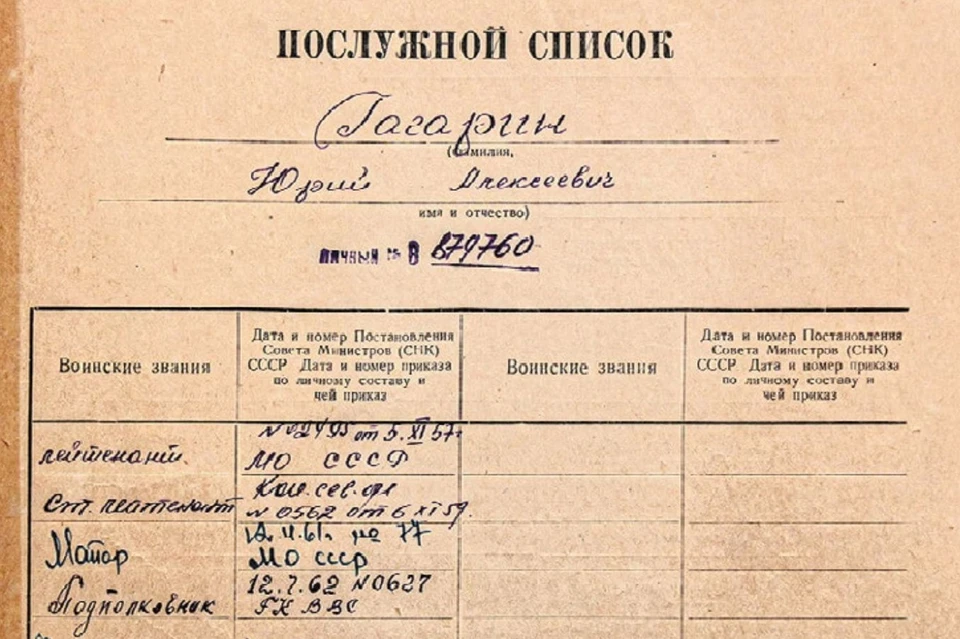 ПОСЛУЖНОЙ СПИСОК
Гагарин
(фамилия,
Юрий Алексеевич
имя и отчество)
ЛИЧНЫЙ № В 879760
Воинские звания
Дата и номер Постановления
Совета Министров (СНК)
СССР Дата и номер приказа
по личному составу и
чей приказ
Воинские звания
Дата и номер Постановления
Совета Министров (СНК)
СССР Дата и номер приказа
по личному составу и
чей приказ
лейтенант
№ 02495 от 5.XI 57г
МО СССР
Ст. лейтенант
Ком. сев. фл
№ 0562 от 6 XI 59.
Майор
12.4.61г. № 77
МО СССР
Подполковник
№ 0627
ГК ВВС